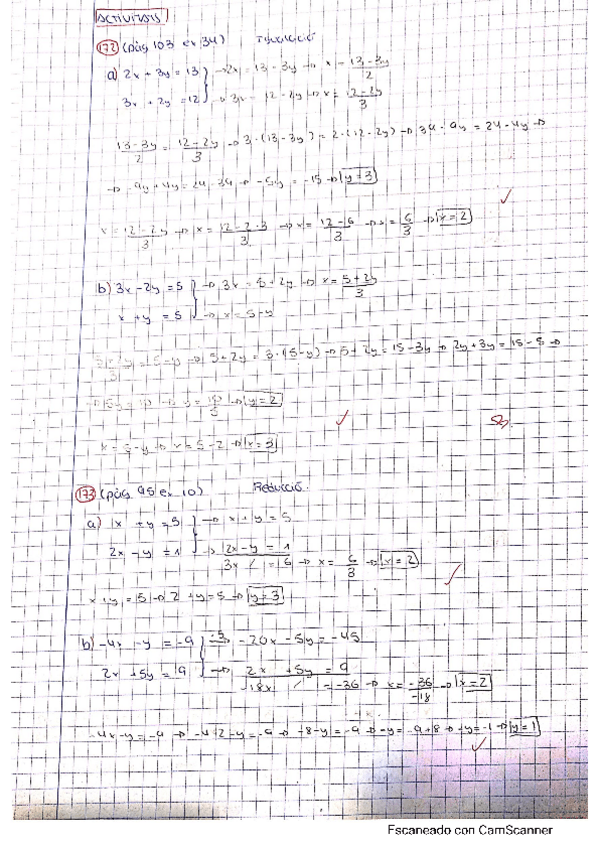 ACTIVITATS
172 (pàg 103 ex 34) Igualació
a) 2x + 3y = 13 } → 2x = 13 - 3y → x = 13 - 3y / 2
3x + 2y = 12 } → 3x = 12 - 2y → x = 12 - 2y / 3
13 - 3y / 2 = 12 - 2y / 3 → 3 · (13 - 3y) = 2 · (12 - 2y) → 39 - 9y = 24 - 4y →
→ -9y + 4y = 24 - 39 → -5y = -15 → y = 3
x = 12 - 2y / 3 → x = 12 - 2 · 3 / 3 → x = 12 - 6 / 3 → x = 6 / 3 → x = 2
b) 3x - 2y = 5 } → 3x = 5 + 2y → x = 5 + 2y / 3
x + y = 5 } → x = 5 - y
5 + 2y / 3 = 5 - y → 5 + 2y = 3 · (5 - y) → 5 + 2y = 15 - 3y → 2y + 3y = 15 - 5 →
→ 5y = 10 → y = 10 / 5 → y = 2
x = 5 - y → x = 5 - 2 → x = 3
173 (pàg 95 ex 10) Reducció
a) x + y = 5 } → x + y = 5
2x - y = 1 } → 2x - y = 1
3x / = 6 → x = 6 / 3 → x = 2
x + y = 5 → 2 + y = 5 → y = 3
b) -4x - y = -9 } ·5 → -20x - 5y = -45
2x + 5y = 9 } → 2x + 5y = 9
-18x / = -36 → x = -36 / -18 → x = 2
-4x - y = -9 → -4 · 2 - y = -9 → -8 - y = -9 → -y = -9 + 8 → -y = -1 → y = 1
Escaneado con CamScanner